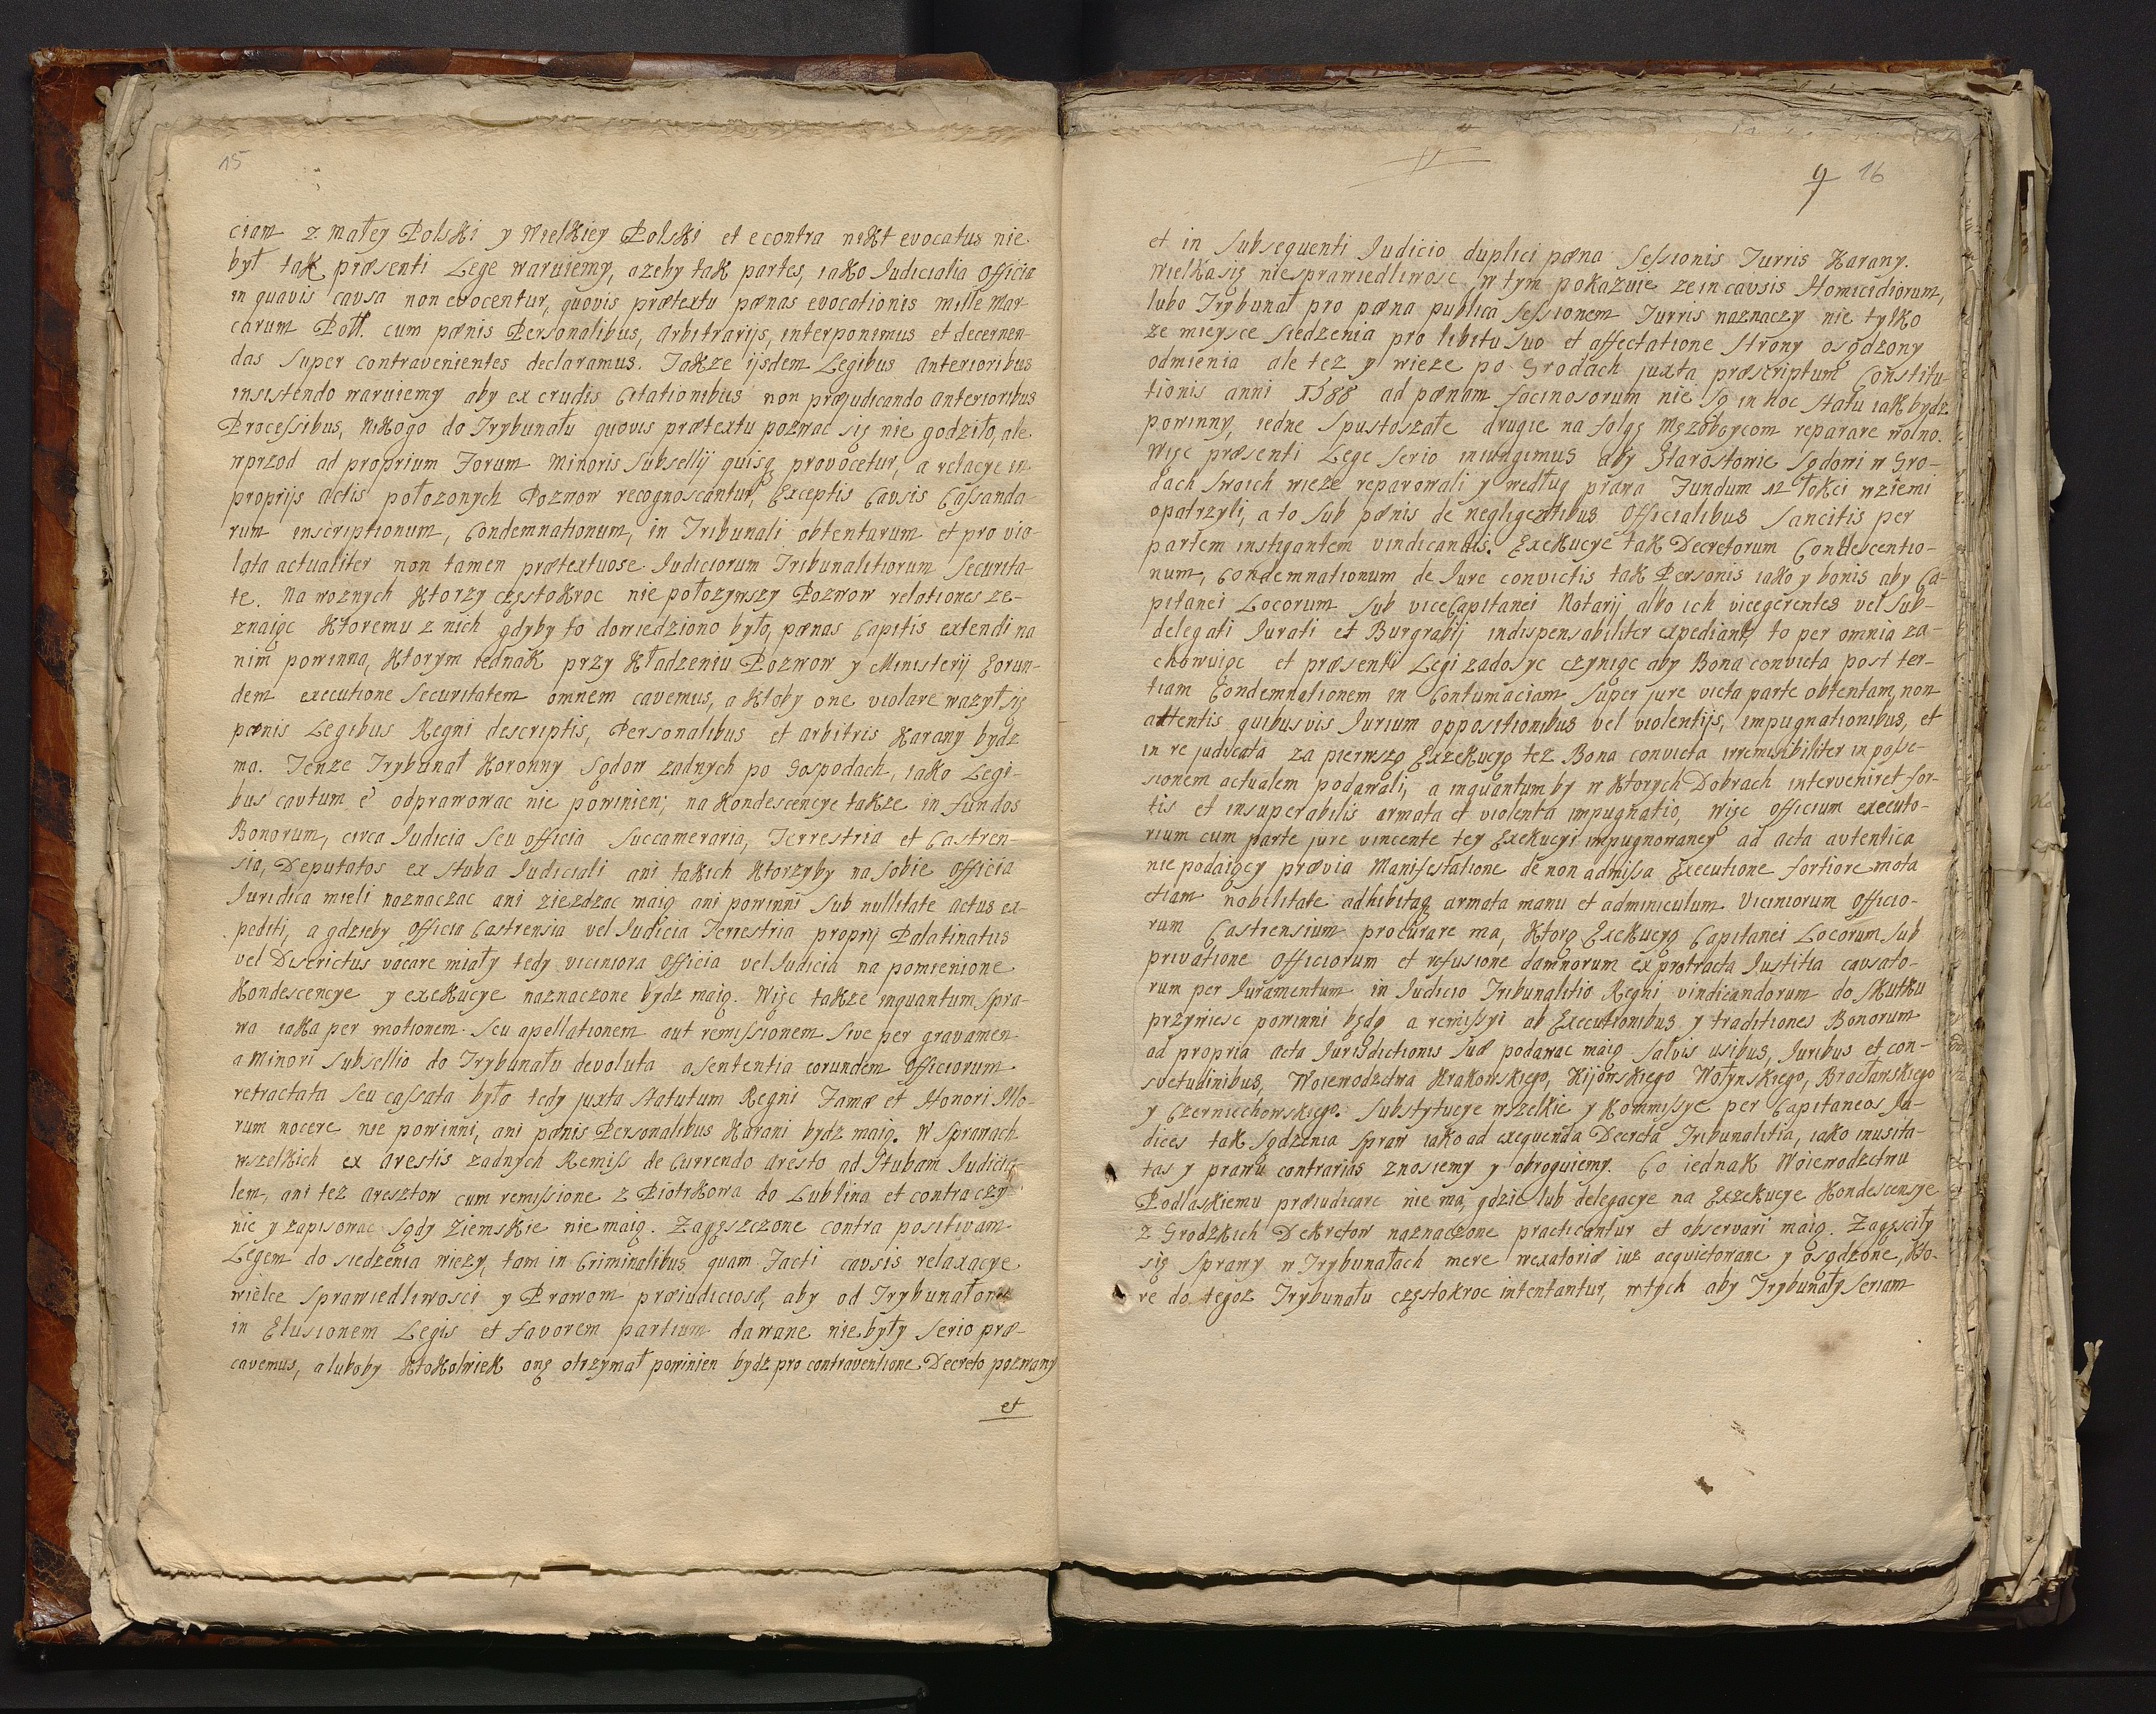 15
ciam z małey Polski y Wielkiey Polski et econtra nikt evocatus nie
był tak præsenti Lege waruiemy, azeby tak partes, iako Judicialia Officia
in quavis causa non evocentur, quovis prætextu pœnas evocationis mille Mar-
carum Poll. cum pœnis Personalibus, Arbitrarijs, interponimus et decernen-
das super contravenientes declaramus. Takze ijsdem Legibus Anterioribus
insistendo waruiemy aby ex crudis Citationibus non præjudicando Anterioribus
Processibus, Nikogo do Trybunału quovis prætextu pozwac się nie godziło, ale
wprzod ad proprium Forum Minoris Subsellij quisq provocetur, a relacye in
proprijs Actis położonych Pozwow recognoscantur, Exceptis Causis Cassanda-
rum inscriptionum, Condemnationum, in Tribunali obtentarum et pro vio-
lata actualiter non tamen prætextuose Judiciorum Tribunalitiorum Securita-
te. Na woznych Ktorzy częstokroc nie położywszy Pozwow relationes ze-
znaiąc Ktoremu z nich gdyby to dowiedziono było, pœnas Capitis extendi na
nim powinna, Ktorym iednak przy Kładzeniu Pozwow y Ministerij Eorun-
dem executione Securitatem omnem cavemus, a Ktoby one violare wazył się
pœnis Legibus Regni descriptis, Personalibus et arbitris Karany bydz
ma. Tenze Trybunał Koronny Sądow zadnych po Gospodach, iako Legi-
bus cautum e odprawowac nie powinien; na Kondescencye takze in fundos
Bonorum, circa Judicia seu officia Succameraria, Terrestria et Castren-
sia, Deputatos ex Stuba Judiciali ani takich Ktorzyby na sobie Officia
Juridica mieli naznaczac ani ziezdzac maią ani powinni sub nullitate Actus ex-
pediti, a gdzieby Officia Castrensia vel Judicia Terrestria proprij Palatinatus
vel Districtus vacare miały tedy viciniora Officia vel Judicia na pomienione
Kondescencye y exekucye naznaczone bydz maią. Więc takze inquantum spra-
wa iaka per motionem seu apellationem aut remissionem sive per gravamen
a Minori Subsellio do Trybunału devoluta a sententia eorundem Officiorum
retractata seu cassata była tedy juxta Statutum Regni Famæ et Honori Illo-
rum nocere nie powinni, ani pœnis Personalibus Karani bydz maią. W Sprawach
wszelkich ex Arestis zadnych Remiss de Currendo Aresto ad Stubam Judicia-
lem, ani tez Aresztow cum remissione z Piotrkowa do Lublina et contra czy-
nic y zapisowac Sądy Ziemskie nie maią. Zagęszczone contra positivam
Legem do siedzenia wiezy, tam in Criminalibus quam Facti causis relaxacye
wielce Sprawiedliwosci y Prawom præiudiciosæ, aby od Trybunałow
in Elusionem Legis et favorem partium dawane nie były serio præ-
cavemus, a luboby Ktokolwiek onę otrzymał powinien bydz pro contraventione Decreto pozwany
et
9 16
et in subsequenti Judicio duplici pœna Sessionis Turris Karany.
Wielka się niesprawiedliwosc w tym pokazuie ze in causis Homicidiorum,
lubo Trybunał pro pœna publica Sessionem Turris naznaczy nie tylko
ze mieysce siedzenia pro libitu suo et affectatione Strony osądzony
odmienia ale tez y wieze po Grodach juxta præscriptum Constitu-
tionis anni 1588 ad pœnam facinosorum nie są in hoc Statu iak bydz
powinny, iedne spustoszałe drugie na folgę Męzoboycom reparare wolno.
Więc præsenti Lege serio iniungimus aby Starostowie Sądowi w Gro-
dach swoich wieze reparowali y według prawa Fundum 12 łokci w ziemi
opatrzyli, a to sub pœnis de negligentibus Officialibus sancitis per
partem instigantem vindicandis. Exekucye tak Decretorum Condescentio-
num, Condemnationum de Jure convictis tak Personis iako y bonis aby Ca-
pitanei Locorum sub viceCapitanei Notarij albo ich vicegerentes vel Sub-
delegati Jurati et Burgrabij indispensabiliter expediant, to per omnia za-
chowuiąc et præsenti Legi zadosyc czyniąc aby Bona convicta post ter-
tiam Condemnationem in Contumaciam super jure victa parte obtentam, non
attentis quibusvis Jurium oppositionibus vel violentijs, impugnationibus, et
in re judicata za pierwszą Exzekucyą tez Bona convicta irremisibiliter in posse-
sionem actualem podawali, a inquantum by w Ktorych Dobrach interveniret for-
tis et insuperabilis armata et violenta impugnatio, Więc Officium executo-
rium cum parte jure vincente tey Exekucyi impugnowaney ad Acta autentica
nie podaiący prævia Manifestatione de non admissa Executione fortiore mota
etiam nobilitate adhibitaq armata manu et adminiculum Viciniorum Officio-
rum Castrensium procurare ma, Ktorą Exekucyą Capitanei Locorum sub
privatione Officiorum et refusione damnorum ex protracta Justitia causato-
rum per Juramentum in Judicio Tribunalitio Regni vindicandorum do Skutku
przywiesc powinni będą a remissyi ab Executionibus y traditiones Bonorum
ad propria Acta Jurisdictionis suæ podawac maią salvis usibus, Juribus et con-
svetudinibus, Woiewodztwa Krakowskiego, Kijowskiego Wołynskiego, Bracławskiego
y Czerniechowskiego. Substytucye wszelkie y Kommissye per Capitaneos Ju-
dices tak Sądzenia Spraw iako ad exequenda Decreta Tribunalitia, iako inusita-
tas y prawu contrarias znosiemy y abroguiemy. Co iednak Woiewodzctwu
Podlaskiemu præiudicare nie ma, gdzie lub delegacye na Exzekucye Kondescensye
z Grodzkich Dekretow naznaczone practicantur et observari maią. Zagęsciły
się Sprawy w Trybunałach mere wexatoriæ iuz acquietowane y osądzone, Kto-
re do tegoz Trybunału częstokroc intentantur, w tych aby Trybunały Seriam